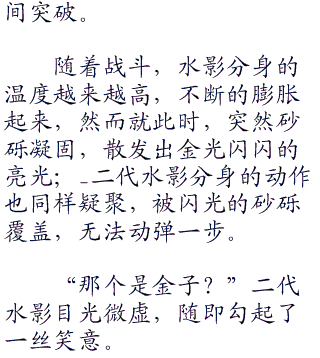 间突破。
随着战斗，水影分身的
温度越来越高，不断的膨胀
起来，然而就此时，突然砂
砾凝固，散发出金光闪闪的
亮光；_二代水影分身的动作
也同样疑聚，被闪光的砂砾
覆盖，无法动弹一步。
“那个是金子？”二代
水影目光微虚，随即勾起了
一丝笑意。